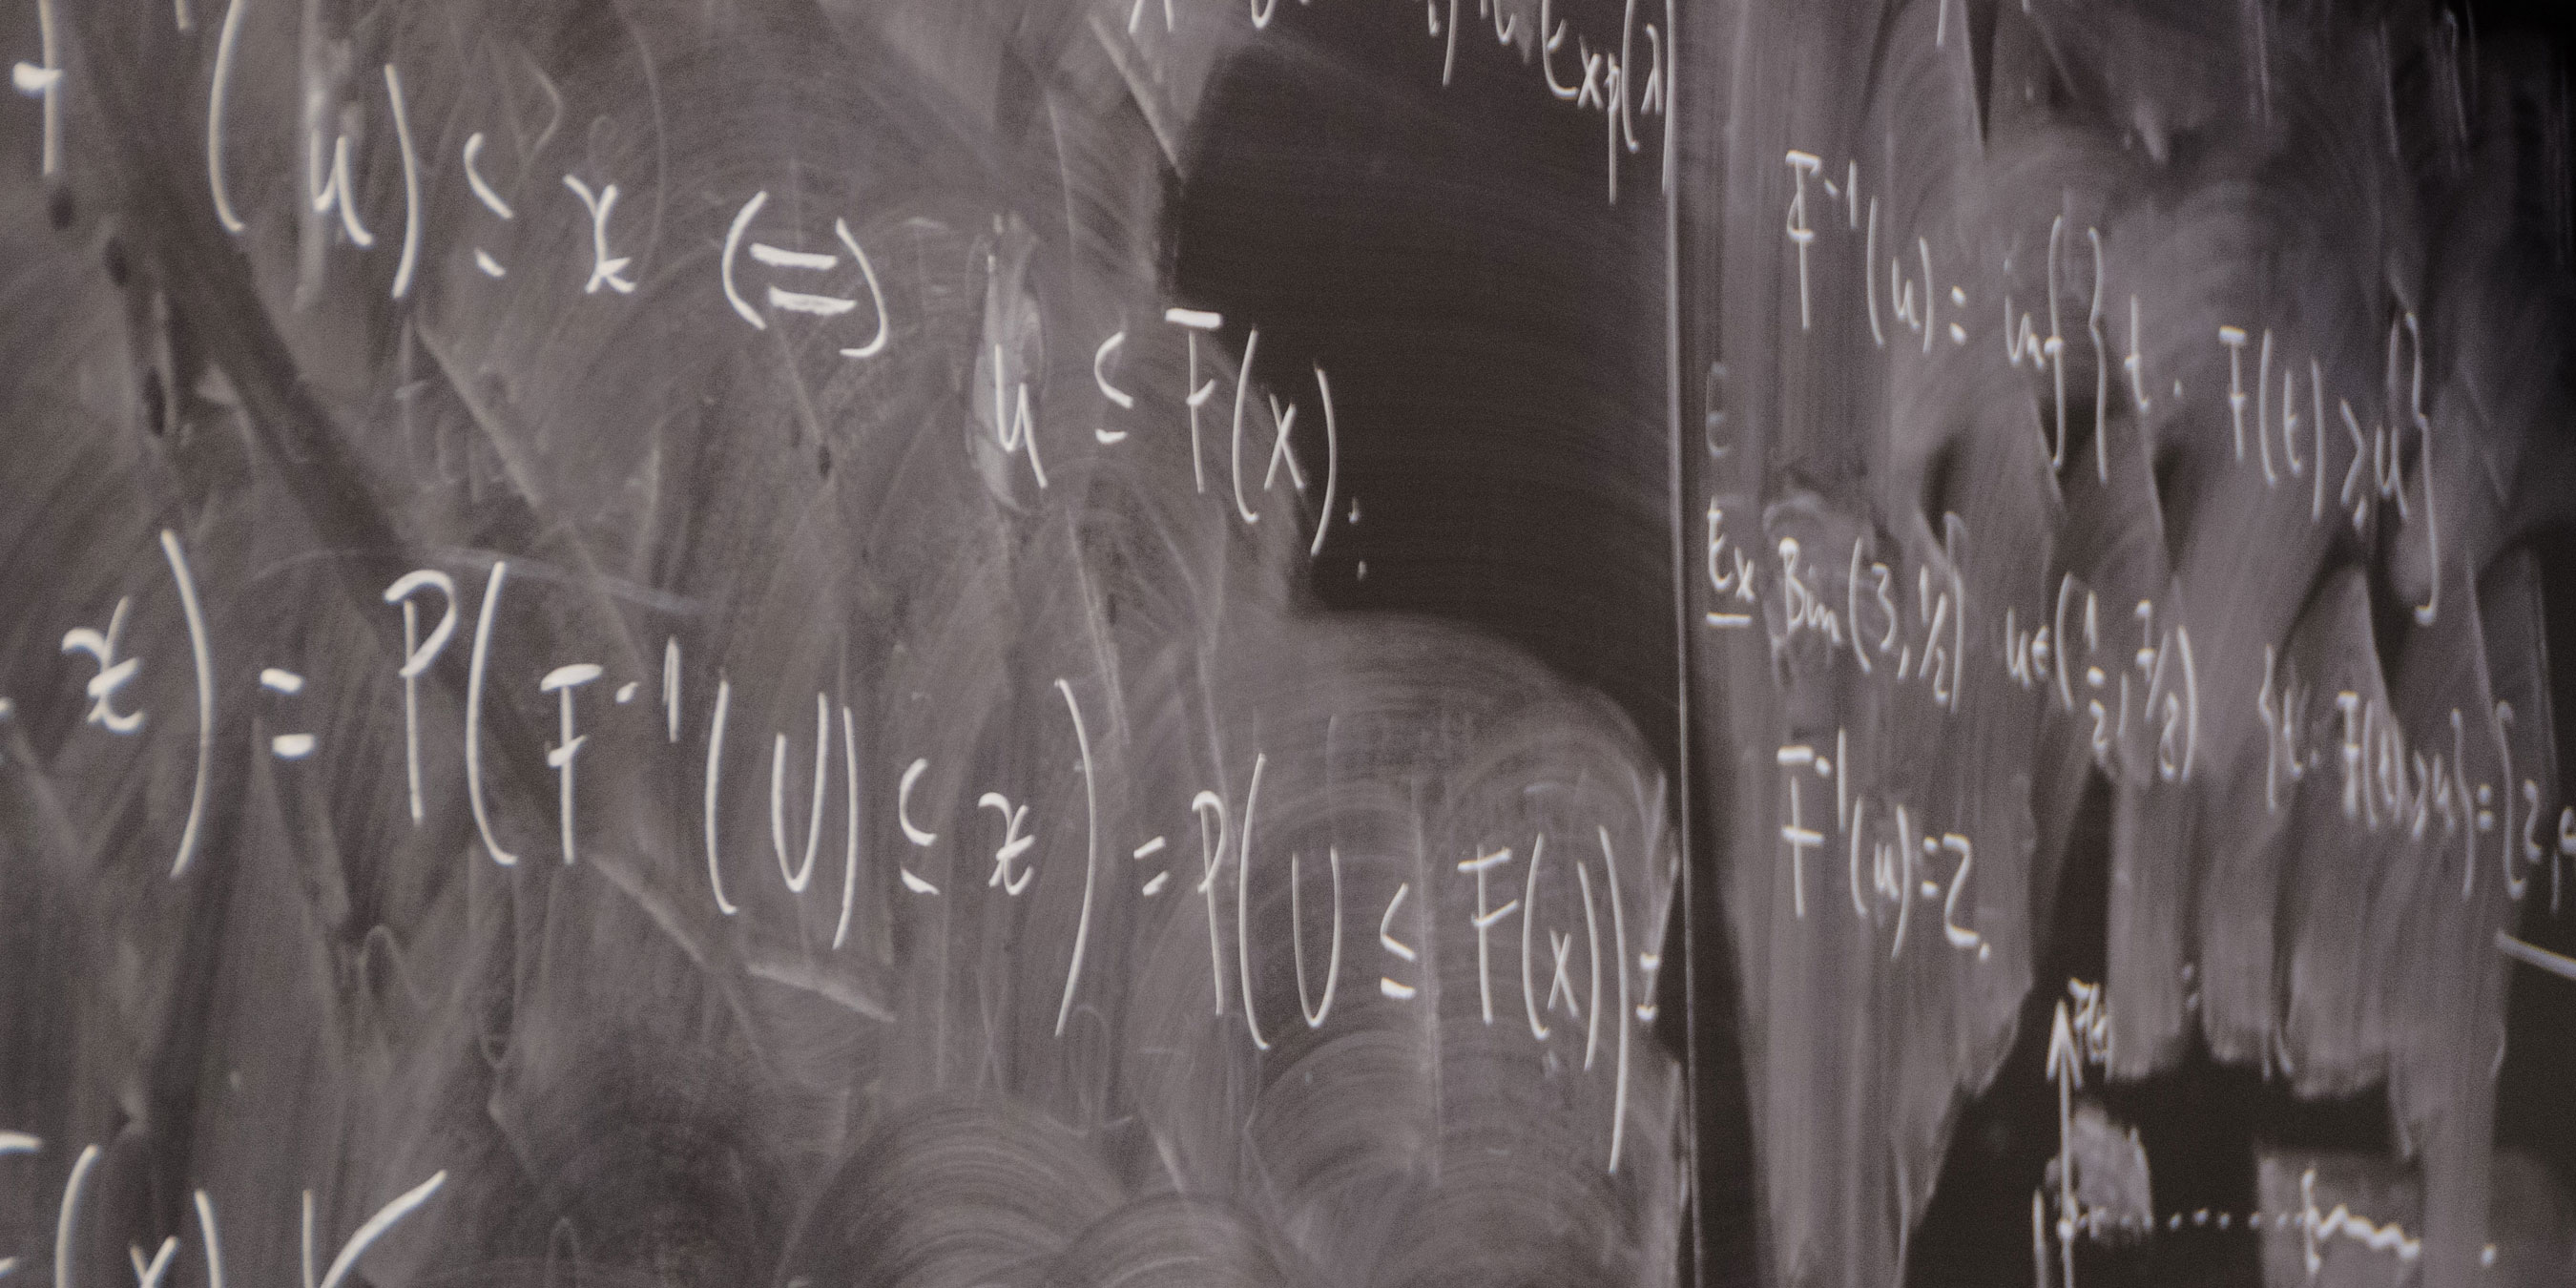 Exp(λ
(u) ≤ x (=) u ≤ F(x).
x) = P(F⁻¹(U) ≤ x) = P(U ≤ F(x)) =
F(x) ✓
F⁻¹(u) = inf{t. F(t) ≥ u}
Ex Bin(3, 1/2) u ∈ (1/2, 7/8) {t. F(t) ≥ u} = [2,
F⁻¹(u) = 2.